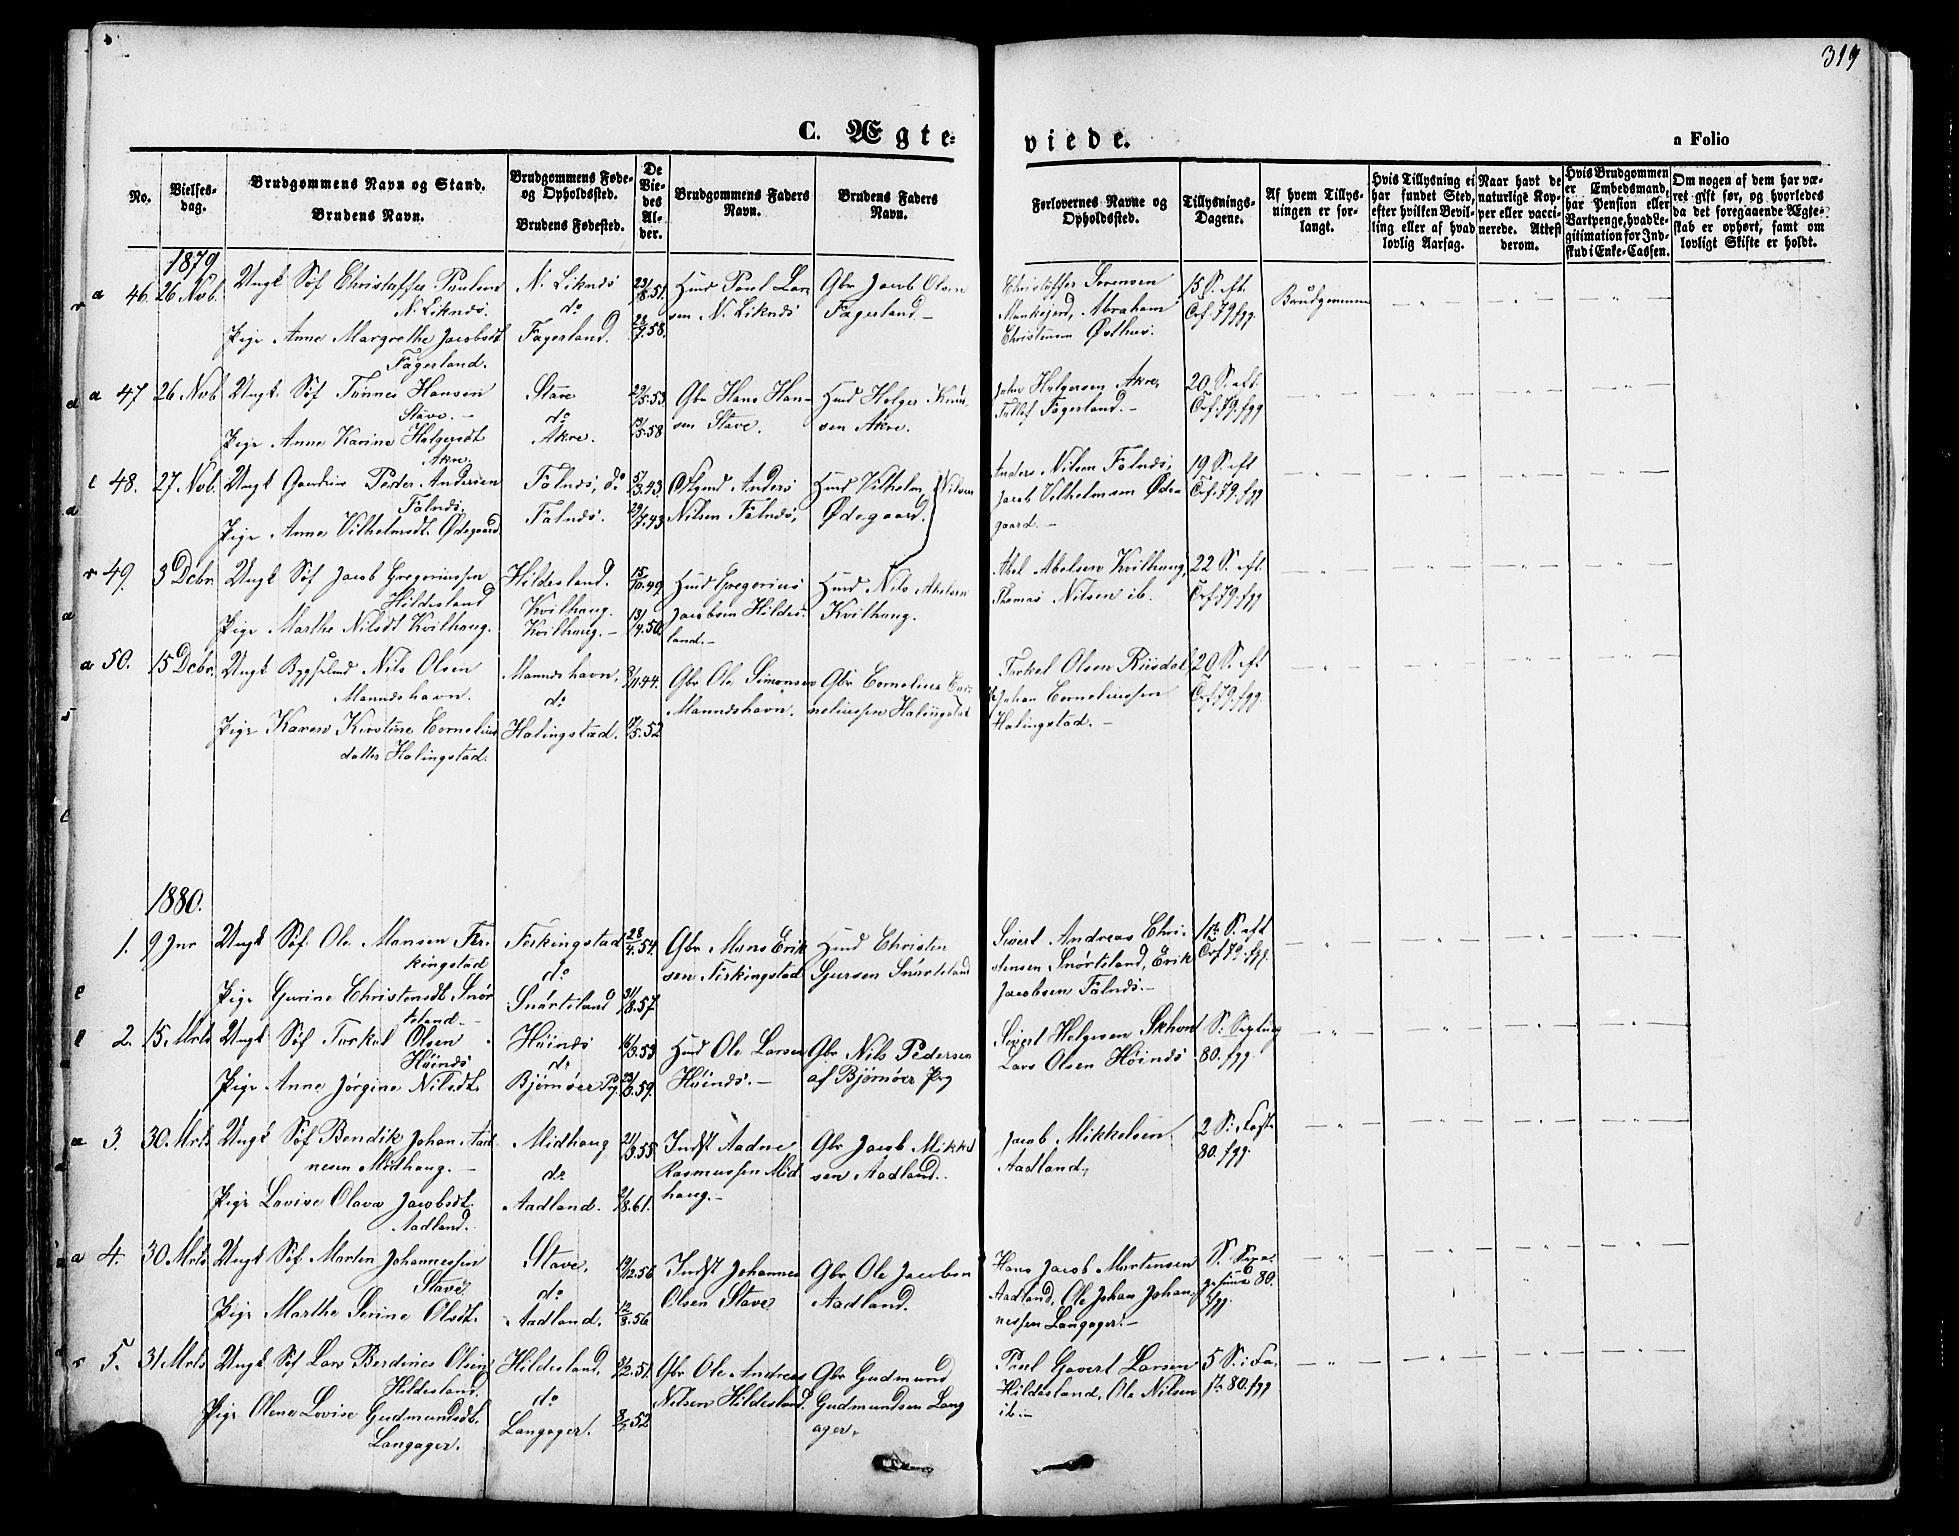 319
C. Ægte-
viede.
a Folio
No.
Vielses-
dag.
Brudgommens Navn og Stand.
Brudens Navn.
Brudgommens Føde-
og Opholdssted.
Brudens Fødested.
De
Vie-
des
Al-
der.
Brudgommens Faders
Navn.
Brudens Faders
Navn.
Forlovernes Navne og
Opholdssted.
Tillysnings-
Dagene.
Af hvem Tillys-
ningen er for-
langt.
Hvis Tillysning ei
har fundet Sted,
efter hvilken Bevil-
ling eller af hvad
lovlig Aarsag.
Naar havt de
naturlige Kop-
per eller vacci-
nerede. Attest
derom.
Hvis Brudgommen
er Embedsmand,
har Pension eller
Vartpenge, hvad Le-
gitimation for Ind-
skud i Enke-Cassen.
Om nogen af dem har væ-
ret gift før, og hvorledes
da det foregaaende Ægte-
skab er ophørt, samt om
lovligt Skifte er holdt.
1879
a 46. 26 Nvb. Ungk Søf Christoffer Paulsen
N. Liknæs.
Pige Anne Margrethe Jacobsdt
Fagerland.
N. Liknæs
do
Fagerland.
22/8.51.
28/7.58.
Husd Poul Lar-
sen N. Liknæs
Gbr Jacob Olsen
Fagerland
Christoffer Sørensen
Munkejord, Abraham
Christensen Østhus.
15 S. eft.
Trf. 79 fgg.
Brudgommen
a 47 26 Nvb Ungk. Søf Tønnes Hansen
Stave.
Pige Anne Karine Holgersdt
Akre.
Stave
do
Akre.
29/5.53
13/5.58
Gbr Hans Han-
sen Stave.
Husd Holger Knud-
sen Akre.
John Holgersen Akre,
Tollef Fagerland.
20 S. eft.
Trf. 79. fgg
48. 27 Nvb. Ungk Peder Andersen
Falnæs.
Pige Anne Vilhelmsdt. Ødegaard
Falnæs, do
Falnæs.
5/3.43
29/7.43
Anders
Nilsen Falnæs,
Husd Vilhelm Nilsen
Ødegaard.
Anders Nilsen Falnæs,
Jacob Vilhelmsen Øde-
gaard.
19 S. eft
Trf. 79. fgg
r 49. 3 Dcbr Ungk Søf Jacob Gregeriussen
Hildesland
Pige Marthe Nilsdt Kvilhaug.
Hildesland.
Kvilhaug.
Kvilhaug.
15/10.49
13/4.50.
Husd Gregerius
Jacobsen Hildes-
land.
Husd Nils Abelsen
Kvilhaug.
Abel Abelsen Kvilhaug,
Thomas Nilsen ib.
22 S. eft.
Trf. 79. fgg
a 50. 15 Dcbr. Ungk Nils Olsen
Mannæshavn.
Pige Karen Kirstine Cornelius
datter Halingstad.
Mannæshavn,
do
Halingstad.
9/11.44.
17/5.52
Gbr Ole Simonsen
Mannæshavn.
Gbr Cornelius Cor-
neliussen Halingstad
Torkel Olsen Risdal
Johan Corneliussen
Halingstad.
20 S. eft
Trf. 79. fgg
1880.
1. 9 Jnr Ungk Søf. Ole Mansen Fer-
kingstad
Pige Gurine Christensdt Snør
teland.
Ferkingstad
do
Snørteland
28/4.54.
31/8.57.
Gbr Mans Erik
sen Ferkingstad
Husd Christen
Snørteland
Sivert Andreas Chri-
stensen Snørteland, Erik
Jacobsen Falnæs.
2. 15 Mrts Ungk Søf Torkel Olsen
Høinæs
Pige Anne Jørgine Nilsdt.
Høinæs
do
Bjørnøer Pg.
16/3.53
23/3.59.
Husd Ole Larsen
Høinæs.
Gbr. Nils Pedersen
af Bjørnøer Prg
Sivert Helgesen
Lars Olsen Høinæs
80. fgg.
3. 30 Mrts Ungk Søf Bendik Johan Aad-
nesen Midhaug.
Pige Lovise Olava Jacobsdt.
Aadland.
Midhaug
do
Aadland.
21/3.55.
9/8.61.
Indst Aadne
Rasmussen Mid
haug.
Gbr Jacob Mikkel
sen Aadland.
Jacob Mikkelsen
Aadland,
2 S. i Fast.
80. fgg.
a 4. 30 Mrts Ungk Søf Morten Johannessen
Stave
Pige Marthe Serine Olsdt.
Stave,
do
Aadland.
19/12.56
12/8.56
Indst Johannes
Olsen Stave
Gbr Ole Jacobsen
Aadland.
Hans Jacob Mortensen
Aadland, Ole Johan Johan-
nessen Langager.
S. Sexa-
gesima 80.
fgg.
r 5. 31 Mrts Ungk Søf Lars Berdines Olsen
Hildesland.
Pige Olene Lovise Gudmundsdt.
Langager.
Hildesland,
do
Langager.
51.
52
Gbr Ole Andreas
Nilsen Hildesland.
Gbr Gudmund
Gudmundsen Lang
ager.
Poul Govert Larsen
Hildesland, Ole Nilsen
ib.
5 S. i Fa-
st. 80. fgg